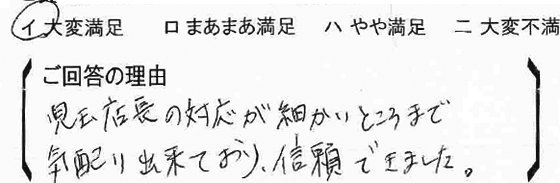 イ 大変満足 ロ まあまあ満足 ハ やや満足 ニ 大変不満
ご回答の理由
児玉店長の対応が細かいところまで
気配り出来ており、信頼できました。